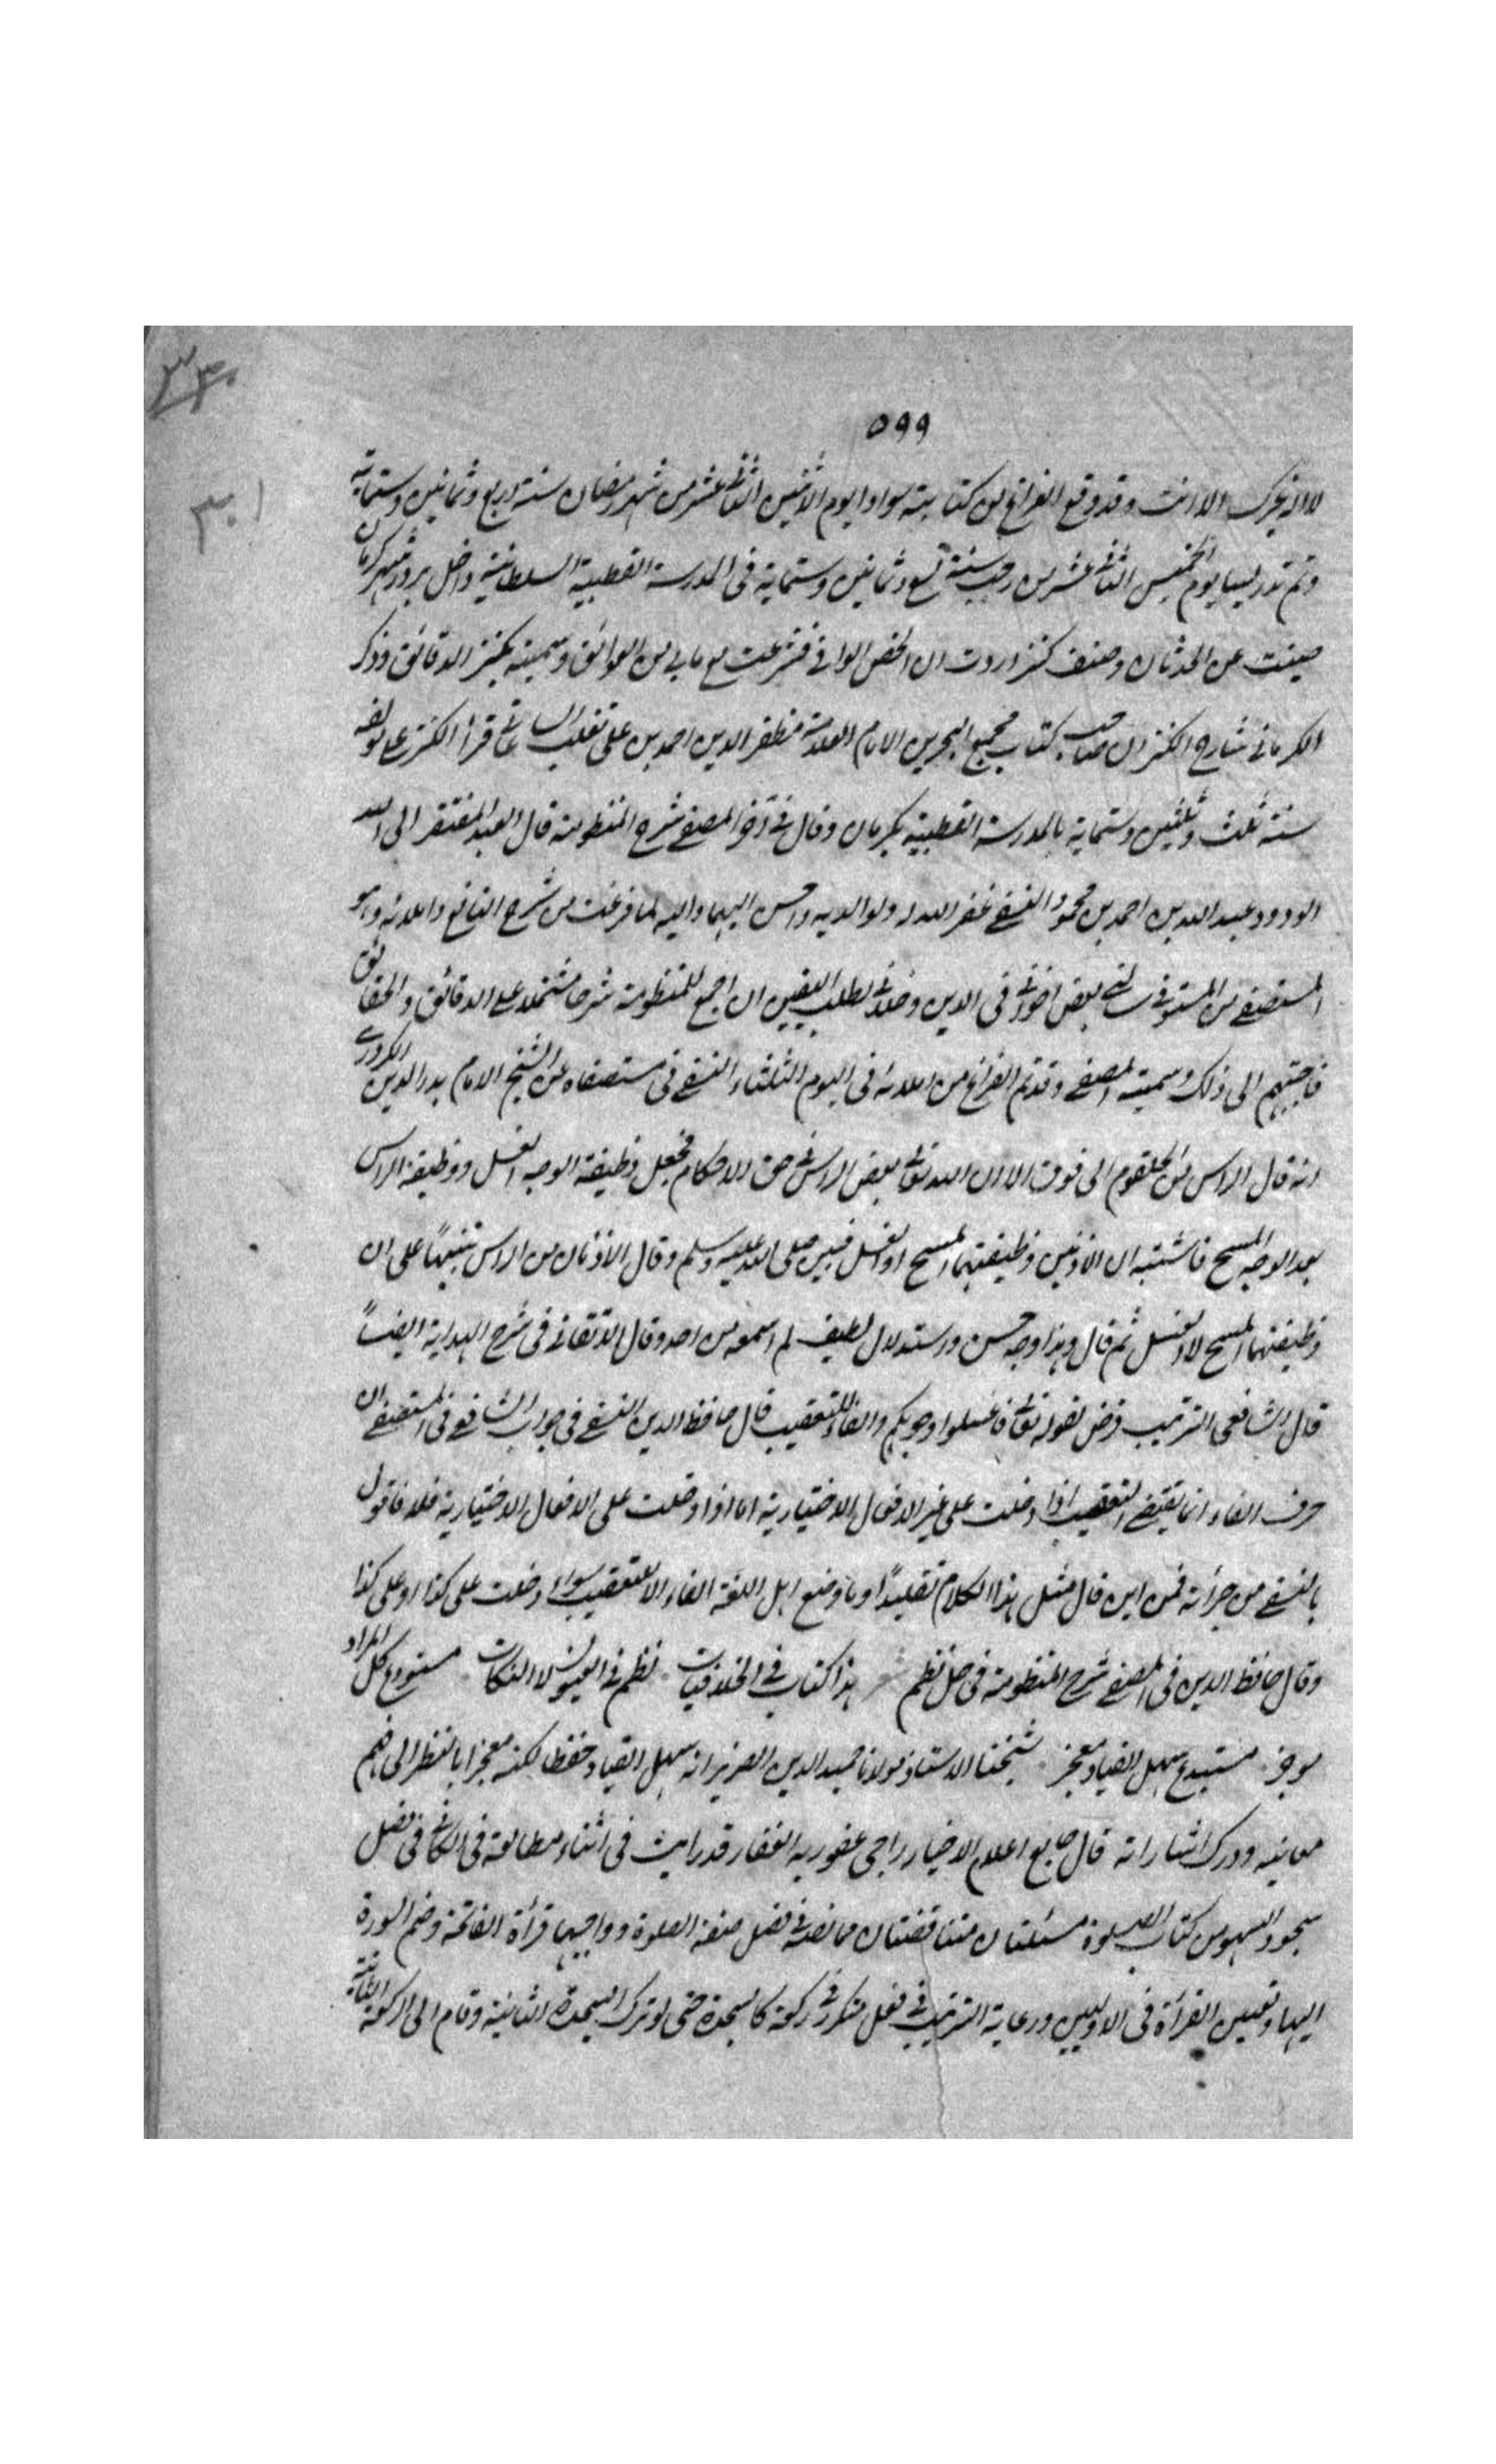 ٣٣٠
٥٩٩
٣٠١
لا اله غيرك الا انت وقد وقع الفراغ من كتابته سوادا يوم الاثنين الثاني عشر من شهر رمضان سنة اربع وثمانين وستماية
وتم تدريسا يوم الخميس الثاني عشر من رجب سنة تسع وثمانين وستماية فى المدرسة القطبية السلطانية داخل بردشير كرمان
صينت عن الحدثان وصنف كنز اردت ان الخص الوافى فشرعت مع مابى من العوائق وسميته بكنز الدقائق وذكر
الكرمانى شارح الكنز ان صاحب كتاب مجمع البحرين الامام العلامة مظفر الدين احمد بن على تغلب الساعاتى قرأ الكنز على مؤلفه
سنة ثلث وثلثين وستماية بالمدرسة القطبية بكرمان وقال فى آخر المصفى شرح المنظومة قال العبد المفتقر الى الله
الودود عبد الله بن احمد بن محمود النسفى غفر الله له ولوالديه واحسن اليهما واليه لما فرغت من شرح النافع واملائه وهو
المستصفى من المستوفى سالنى بعض اخوانى فى الدين وخلانى لطلب اليقين ان اجمع للمنظومة شرحا مشتملا على الدقائق والحقائق
فاجبتهم الى ذلك وسميته المصفى وقد تم الفراغ من املائه فى اليوم الثلثاء النسفى فى مستصفاه عن الشيخ الامام بدر الدين الكردرى
انه قال الراس من الحلقوم الى فوق الا ان الله تعالى بعض الراس فى حق الاحكام فجعل وظيفة الوجه الغسل ووظيفة الراس
بعد الوجه المسح فاشتبه ان الاذنين وظيفتهما المسح او الغسل فبين صلى الله عليه وسلم وقال الاذنان من الراس تنبيها على ان
وظيفتهما المسح لا الغسل ثم قال وهذا وجه حسن واستدلال لطيف لم اسمعه من احد وقال الاتقانى فى شرح الهداية ايضاً
قال الشافعى الترتيب فرض لقوله تعالى فاغسلوا وجوهكم والفاء للتعقيب قال حافظ الدين النسفى فى جواب الشافعى فى المستصفى ان
حرف الفاء انما يقتضى التعقيب اذا دخلت على غير الافعال الاختيارية اما اذا دخلت على الافعال الاختيارية فلا فاقول
يا لنسفى من جرأته فمن اين قال مثل هذا الكلام تقليدًا وما وضع اهل اللغة الفاء الا للتعقيب سواء دخلت على كذا او على كذا
وقال حافظ الدين فى المصفى شرح المنظومة فى حل نظم هذا كتاب فى الخلافيات نظم فى العيون لا النكات مستودع كل المراد
موجز مستبدع سهل القياد معجز شيخنا الاستاذ مولانا حميد الدين الضرير انه سهل القياد حفظا لكنه معجز ا بالنظر الى فهم
معانيه ودرك اشاراته قال جامع اعلام الاخيار راجى عفو ربه الغفار قد رايت فى اثناء مطالعة فى الكافى فى فصل
سجود السهو من كتاب الصلوة مسئلتان متناقضتان ما نصه فى فصل صفة الصلوة وواجبها قراءة الفاتحة وضم السورة
اليها وتعيين القرأة فى الاوليين ورعاية الترتيب فى فعل مكرر فى ركعة كالسجدة حتى لو ترك السجدة الثانية وقام الى الركعة الثانية